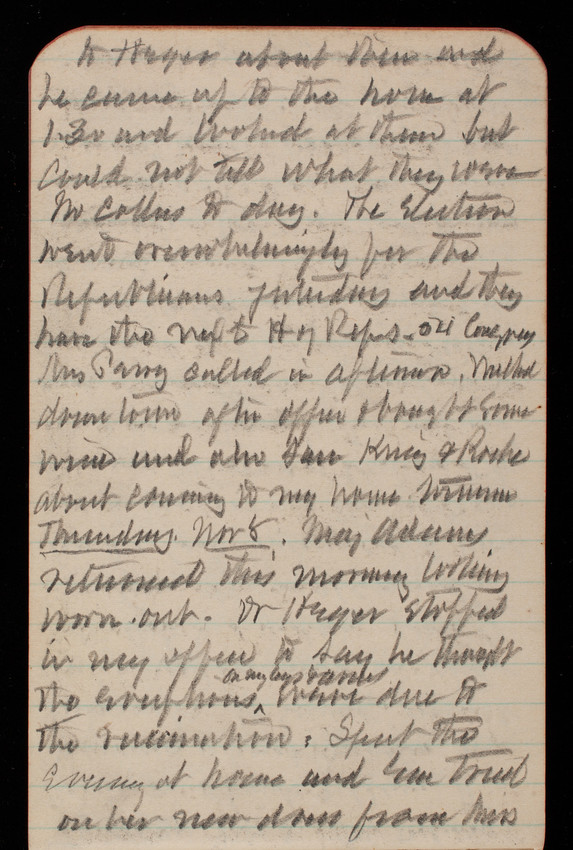 to Heger about them and
he came up to the house at
1.30 and looked at them but
could not tell what they were
No callers to day. The Election
went overwhelmingly for the
Republicans yesterday and they
have the next H of Reps. 54 Congress
Mrs Parry called in afternoon. Walked
down town after office & bought some
wine and also saw & Roche
about coming to my house tomorrow
Thursday Nov 8. Maj Adams
returned this morning looking
worn out. Dr Heger stopped
in my office to say he thought
on my boys
the eruptions were due to
the vaccination: Spent the
Evening at home and tried
on her new dress from Miss